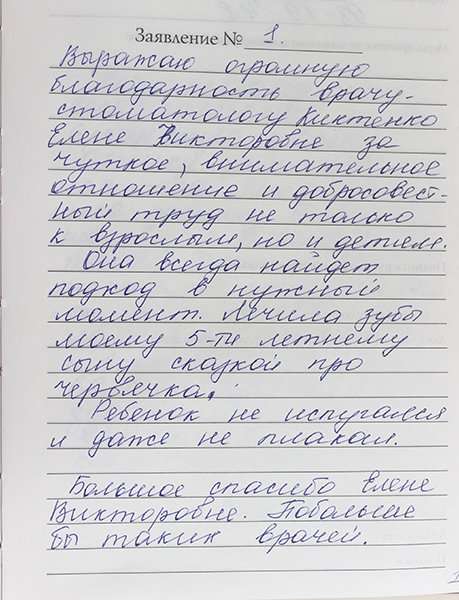 Заявление № 1.
Выражаю огромную
благодарность врачу-
стоматологу Киктенко
Елене Викторовне за
чуткое, внимательное
отношение и добросовест-
ный труд не только
к взрослым, но и детям.
Она всегда найдет
подход в нужный
момент. Лечила зубы
моему 5-ти летнему
сыну сказкой про
червячка.
Ребенок не испугался
и даже не плакал.
Большое спасибо Елене
Викторовне. Побольше
бы таких врачей.